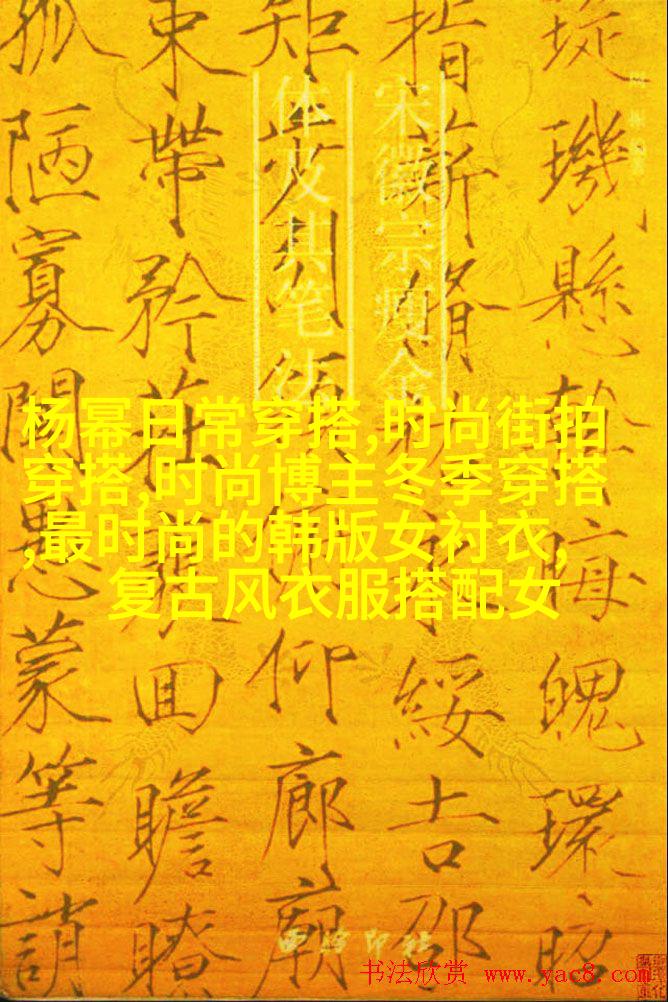 璇璣懸斡晦魄環照
指薪脩永綏吉邵
矩步引俯仰廊廟
束帶矜莊回瞻眺
孤陋寡聞愚蒙等誚
宋徽宗瘦金
体及其笔法
杨幂日常穿搭,时尚街拍
穿搭,时尚博主冬季穿搭
,最时尚的韩版女衬衣,
复古风衣服搭配女
西泠印社
书法欣赏 www.yac8.com